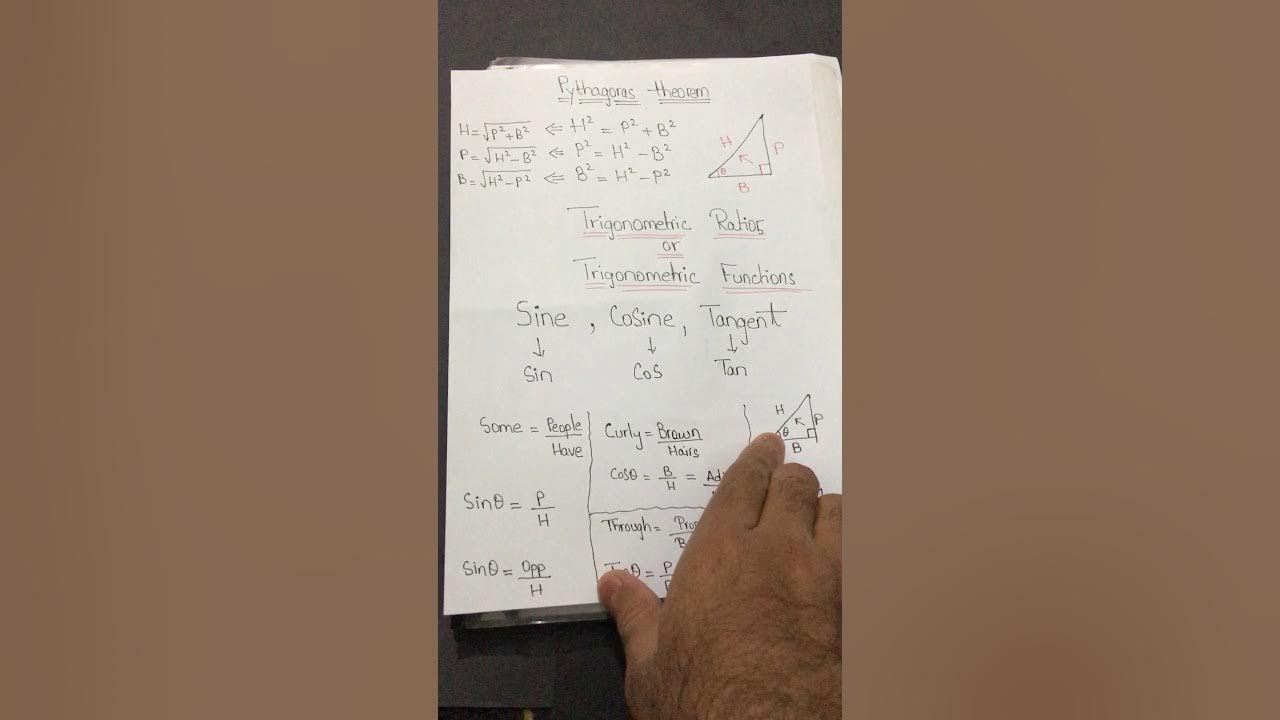 Pythagoras theorem
H=√P²+B² ⇐ H² = P² + B²
P=√H²-B² ⇐ P² = H² - B²
B=√H²-P² ⇐ B² = H² - P²
H
P
θ
B
Trigonometric Ratios
or
Trigonometric Functions
Sine , Cosine, Tangent
↓ ↓ ↓
Sin Cos Tan
Some = People/Have
Sinθ = P/H
Sinθ = Opp/H
Curly = Brown/Hairs
Cosθ = B/H =
Through =
θ = P/
H
P
θ
B